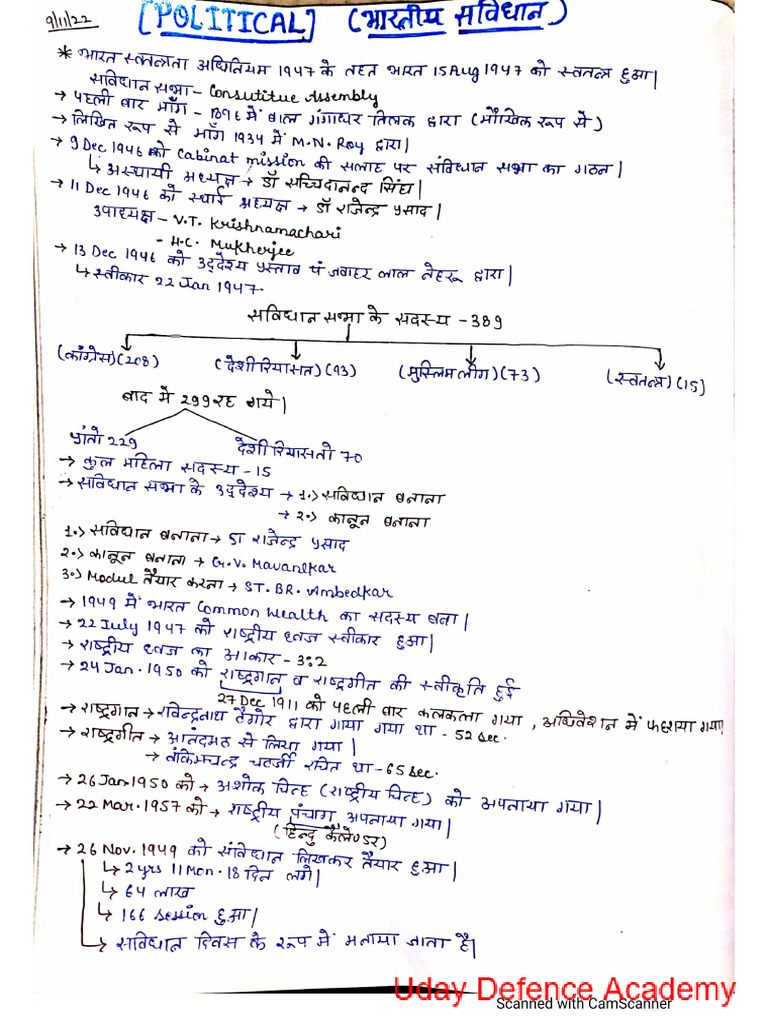 9/11/22
[POLITICAL] (भारतीय सविधान)
* भारत स्वतन्त्रता अधिनियम 1947 के तहत भारत 15 Aug 1947 को स्वतन्त्र हुआ|
सविधान सभा - Consutitue Assembly
→ पहली बार माँग - 1896 में बाल गंगाधर तिलक द्वारा (मौखिक रूप से)
→ लिखित रूप से माँग 1934 में M.N. Roy द्वारा|
→ 9 Dec 1946 को Cabinat mission की सलाह पर संविधान सभा का गठन|
↳ अस्थायी अध्यक्ष → डॉ सच्चिदानन्द सिंघ|
→ 11 Dec 1946 को स्थाई अध्यक्ष → डॉ राजेन्द्र प्रसाद|
उपाध्यक्ष - V.T. Krishnamachari
- H.C. Mukherjee
→ 13 Dec 1946 को उद्देश्य प्रस्ताव पं जवाहर लाल नेहरू द्वारा|
↳ स्वीकार 22 Jan 1947.
सविधान सभा के सदस्य - 389
(काँग्रेस)(208) (देशी रियासत)(93) (मुस्लिम लीग)(73) (स्वतन्त्र)(15)
बाद मे 299 रह गये|
प्रांतो 229 देशी रियासतो 70
→ कुल महिला सदस्य - 15
→ सविधान सभा के उद्देश्य → 1.> सविधान बनाना
→ 2.> कानून बनाना
1.> सविधान बनाना → डा राजेन्द्र प्रसाद
2.> कानून बनाना → G.V. Mavanlkar
3.> Modul तैयार करना → ST. BR. Ambedkar
→ 1949 में भारत Common Wealth का सदस्य बना|
→ 22 July 1947 को राष्ट्रीय ध्वज स्वीकार हुआ|
→ राष्ट्रीय ध्वज का आकार - 3:2
→ 24 Jan. 1950 को राष्ट्रगान व राष्ट्रगीत की स्वीकृति हुई
27 Dec 1911 को पहली बार कलकला गया, अधिवेशन में गया|
→ राष्ट्रगान → रविन्द्रनाथ टैगोर द्वारा गाया गया था - 52 Sec.
→ राष्ट्रगीत → आनंदमठ से लिया गया|
→ वंकिमचन्द्र चटर्जी रचित था - 65 Sec.
→ 26 Jan. 1950 को → अशोक चिन्ह (राष्ट्रीय चिन्ह) को अपनाया गया|
→ 22 Mar. 1957 को → राष्ट्रीय पंचाग अपनाया गया|
(हिन्दु कैलेण्डर)
→ 26 Nov. 1949 को संविधान लिखकर तैयार हुआ|
↳ 2 yrs 11 Mon. 18 दिन लगे|
↳ 64 लाख
↳ 166 Session हुआ|
↳ सविधान दिवस के रूप में मनाया जाता है|
Uday Defence Academy
Scanned with CamScanner